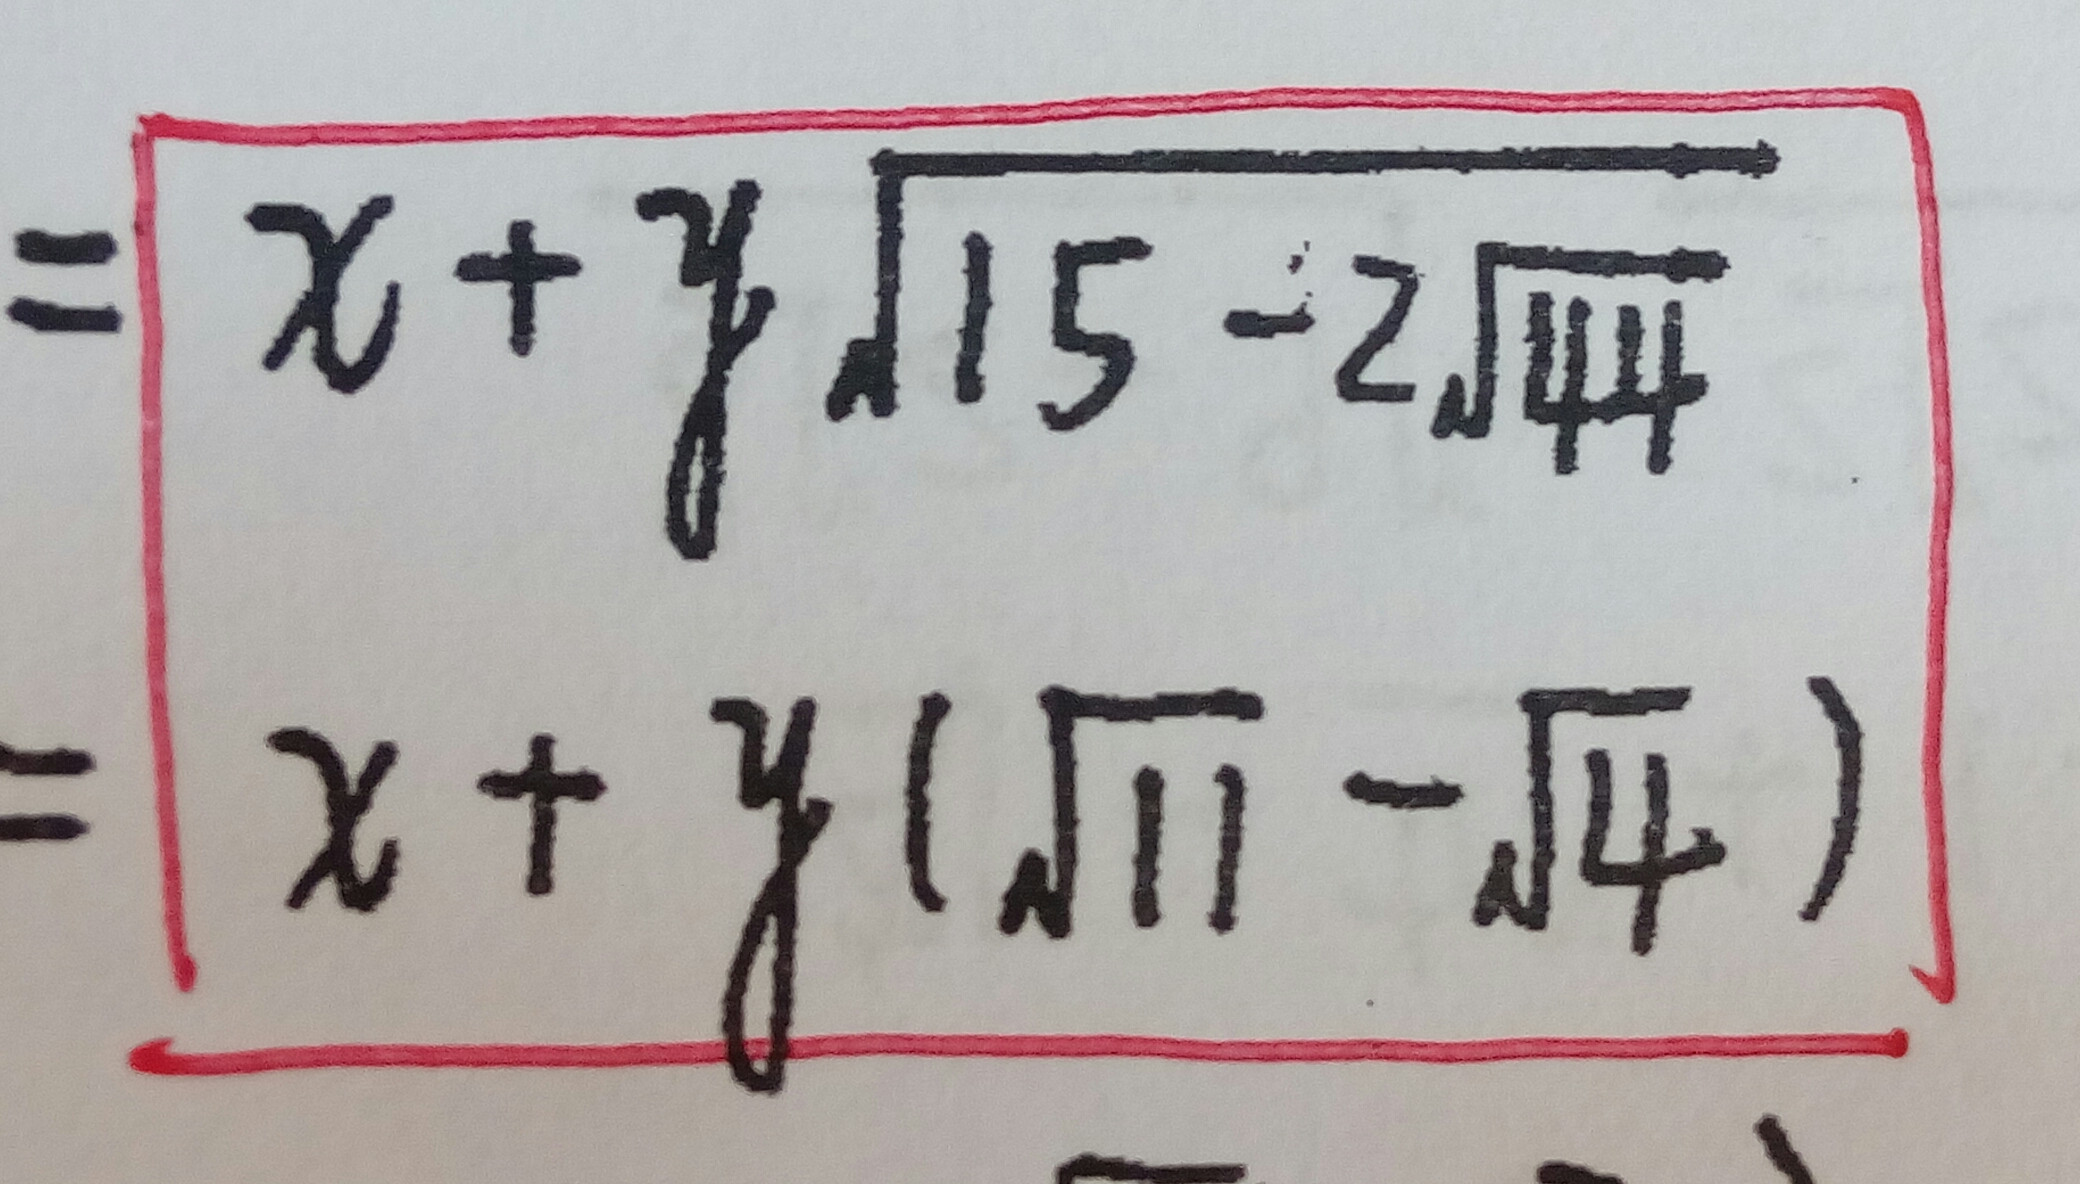 = x + y√(15 - 2√44)
= x + y(√11 - √4)